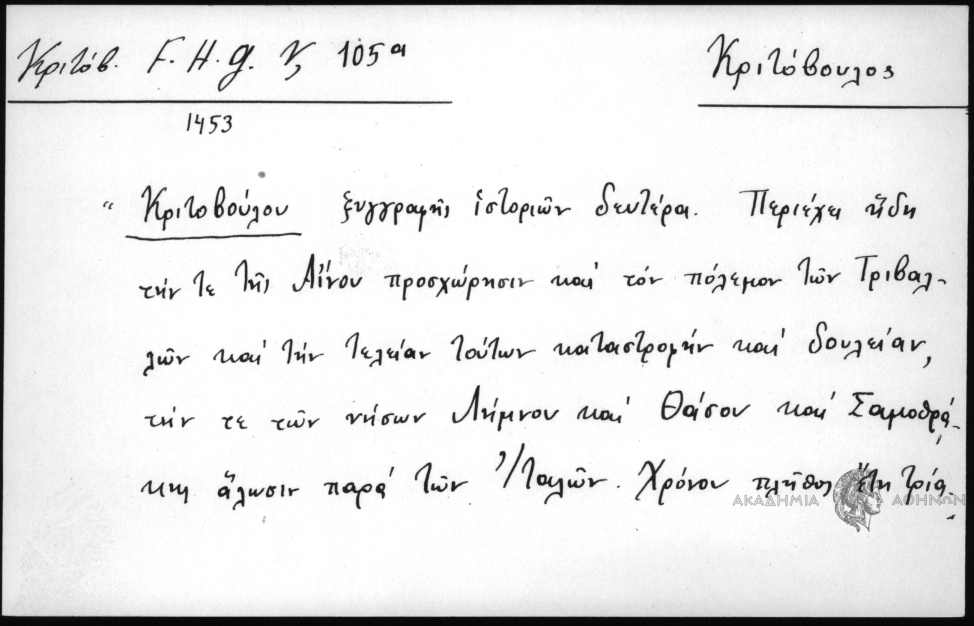 Κριτόβ. F. H. g. V, 105α
Κριτόβουλος
1453
“ Κριτοβούλου ξυγγραφῆς ἱστοριῶν δευτέρα. Περιέχει ἤδη
τήν τε τῆς Αἴνου προσχώρησιν καί τόν πόλεμον τῶν Τριβαλ-
λῶν καί τήν τελείαν τούτων καταστροφήν καί δουλείαν,
τήν τε τῶν νήσων Λήμνου καί Θάσου καί Σαμοθρά-
κης ἅλωσιν παρά τῶν Ἰταλῶν. Χρόνου πλῆθος ἔτη τρία.
ΑΚΑΔΗΜΙΑ ΑΘΗΝΩΝ